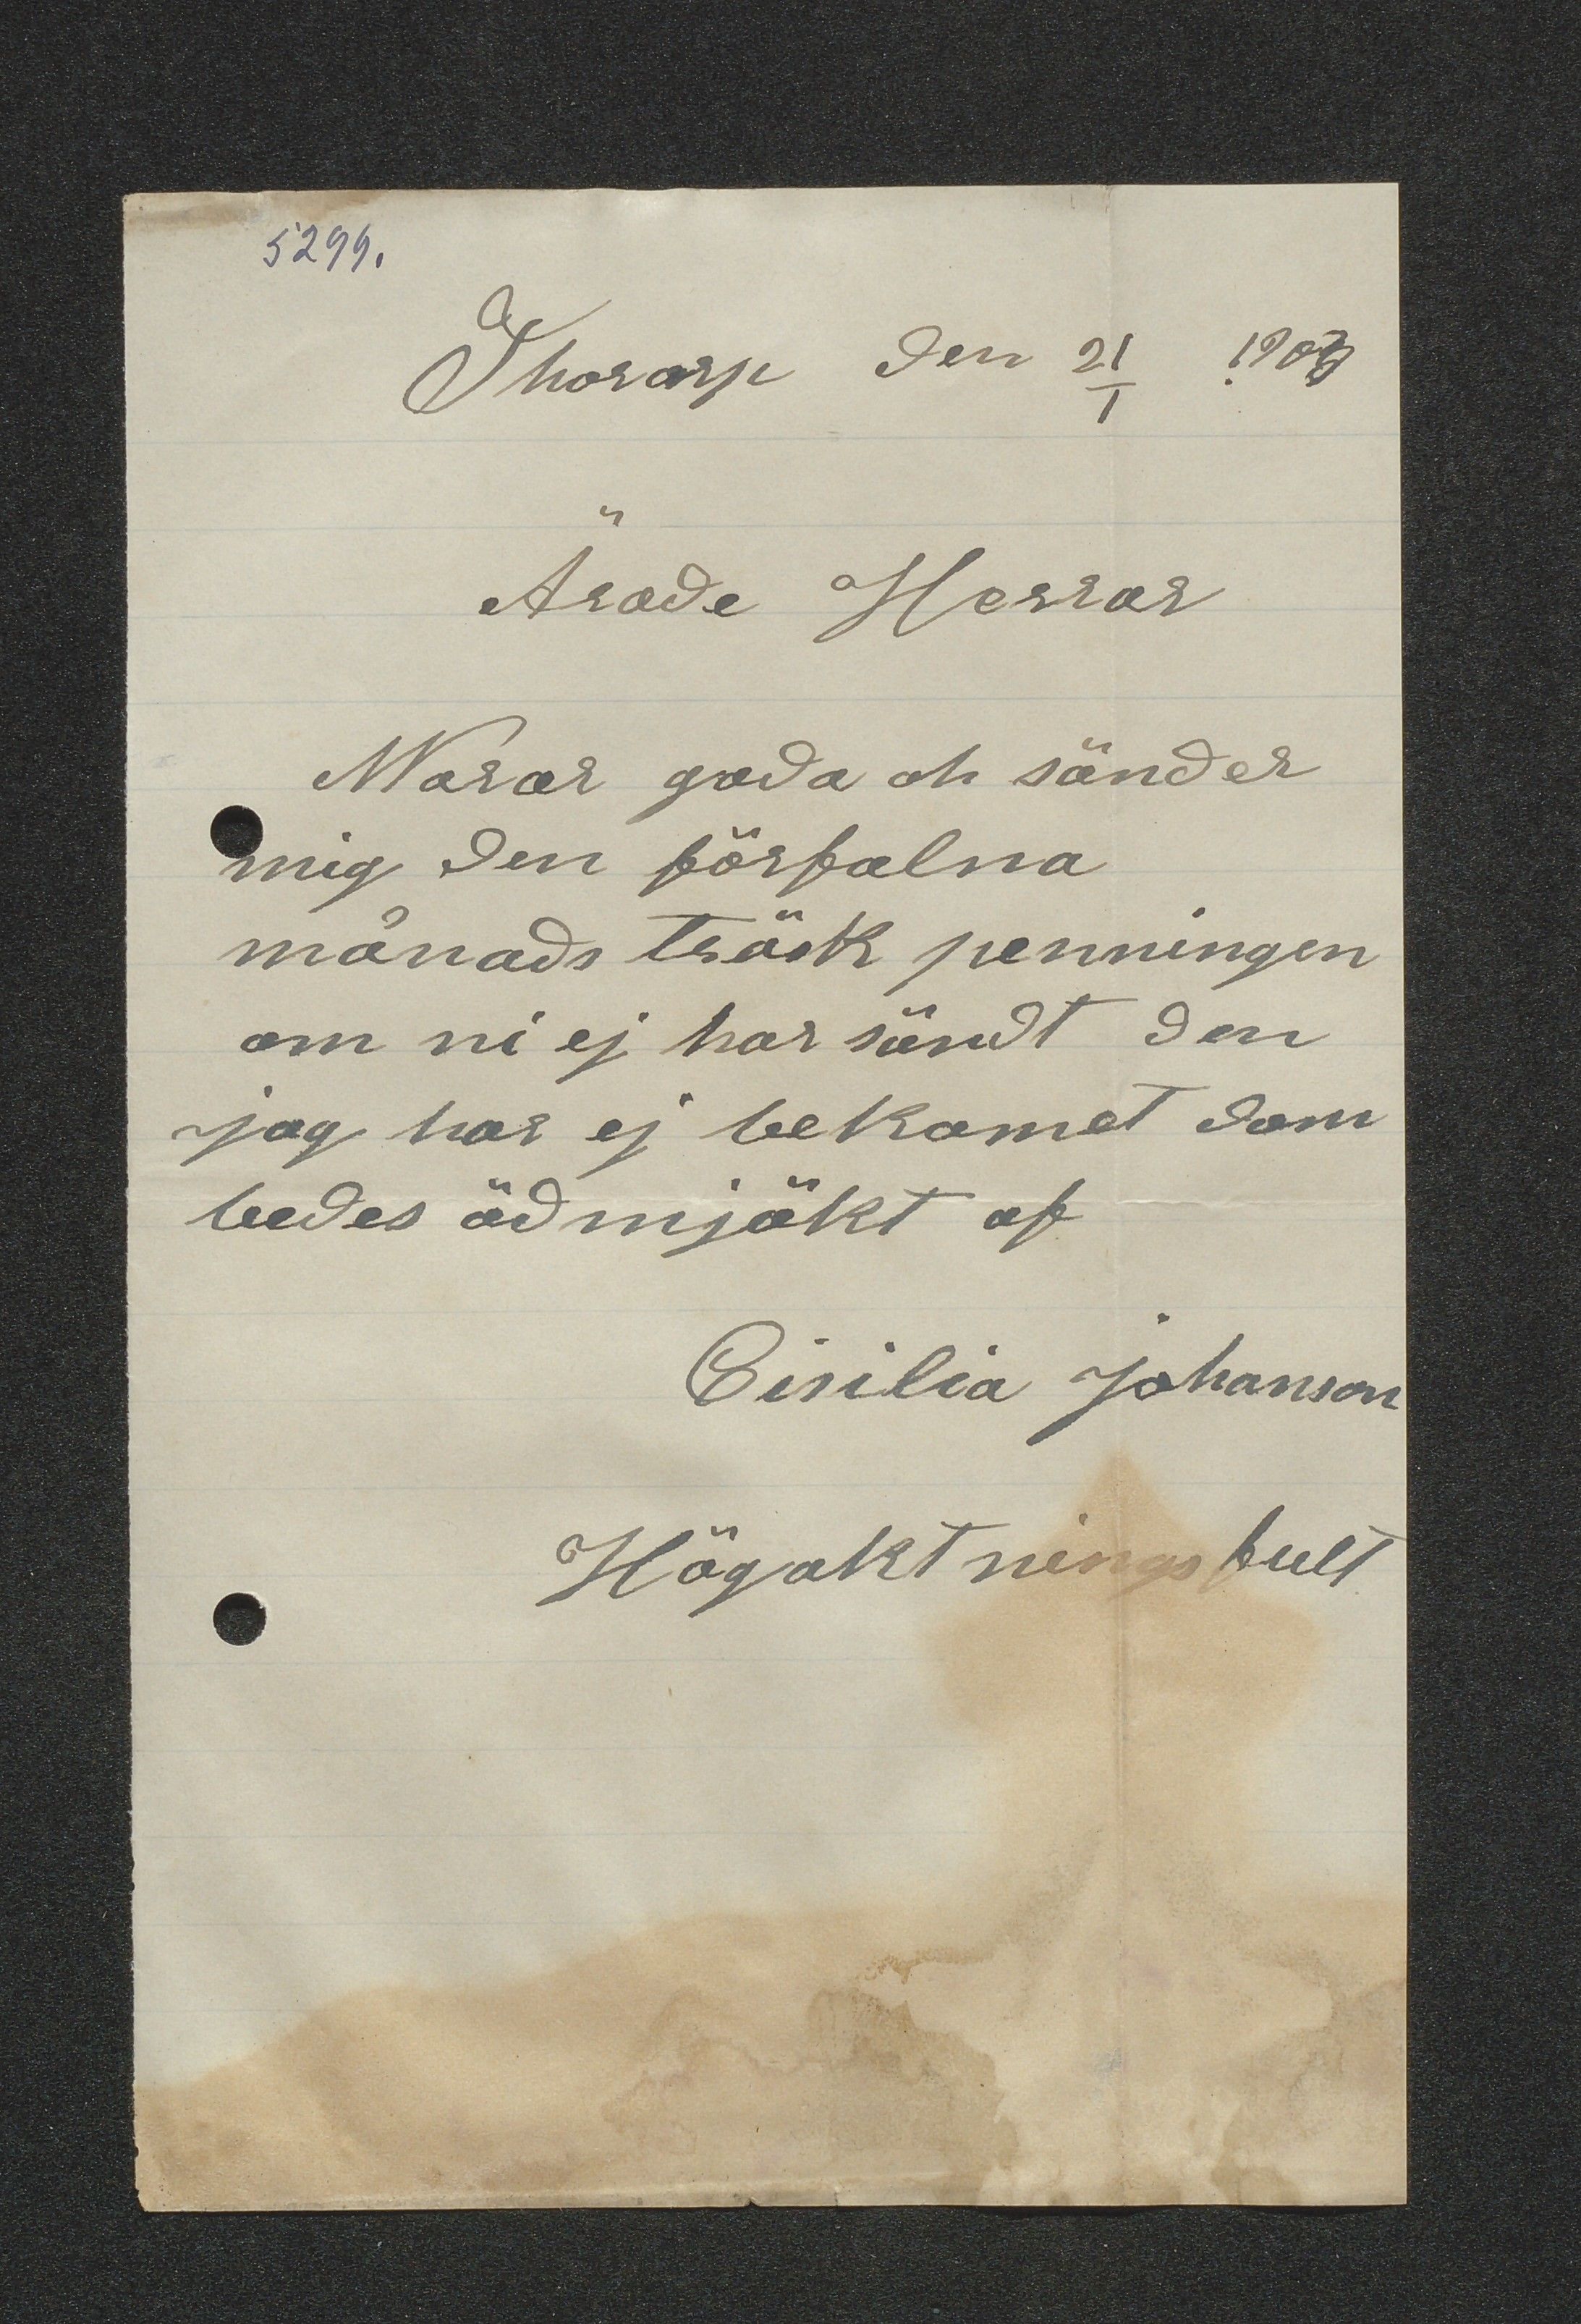 5299.
Thorarp den 21/1 1903
Ärade Herrar
Warar goda oh sänder
mig den förfalna
månads träsk penningen
om ni ej har sändt den
jag har ej bekomet dom
bedes ödmjökt af
Cisilia Johanson
Högaktningsfult